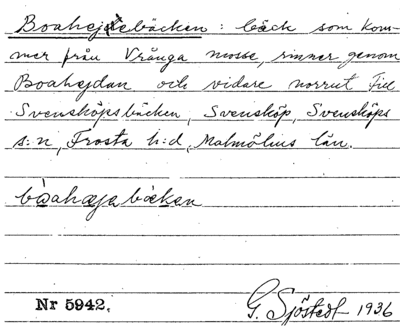 Boahejebäcken : bäck som kom-
mer från Vränga mosse, rinner genom
Boahejdan och vidare norrut till
Svensköpsbäcken, Svensköp, Svensköps
s:n, Frosta h:d, Malmöhus län.
bòahæjabæ̀cken
Nr 5942.
G. Sjöstedt 1936